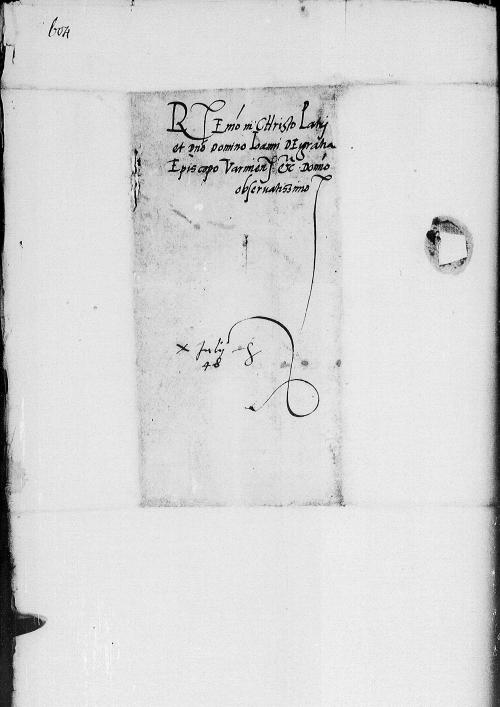 604
REmo in CHristo Patri
et dno Domino Ioanni DEi gratia
Episcopo Varmien etc Domino
observatissimo
x Julij
48